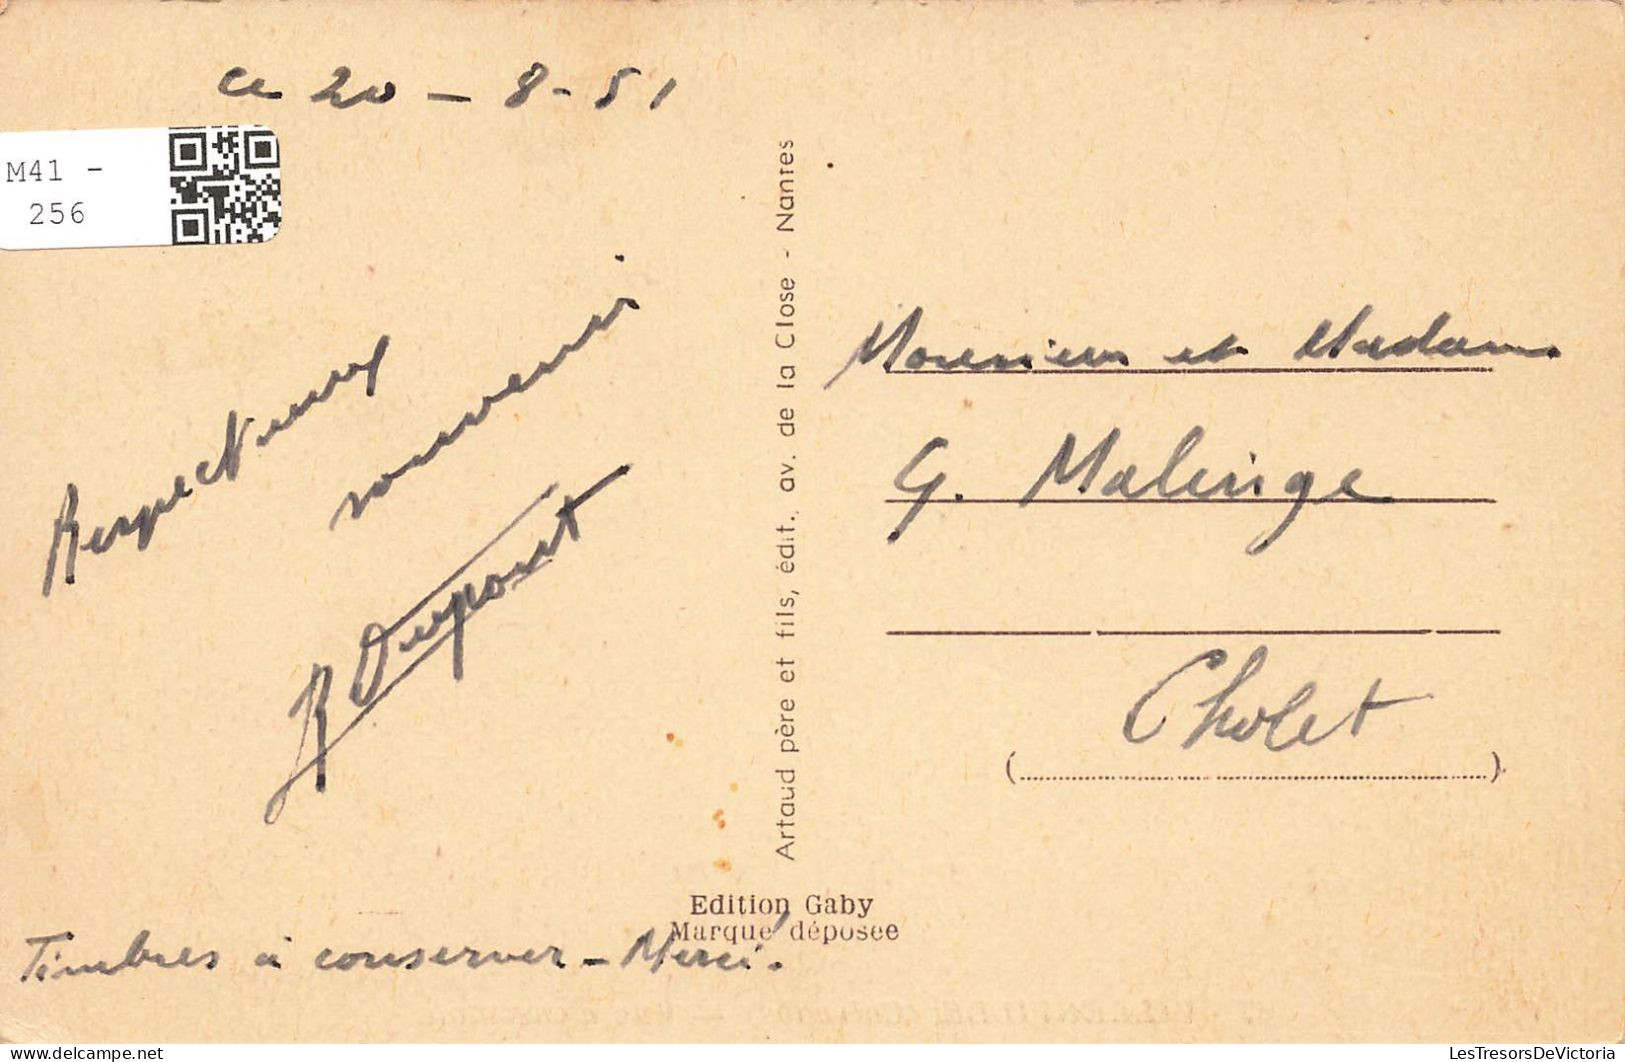 ce 20 - 8 - 51
M41 -
256
Respectueux
souvenir
R Dupont
Timbres à conserver - Merci.
Artaud père et fils, édit. av. de la Close - Nantes
Edition Gaby
Marque déposée
Monsieur et Madame
G. Malinge
Cholet
(........................)
delcampe.net
LesTresorsDeVictoria